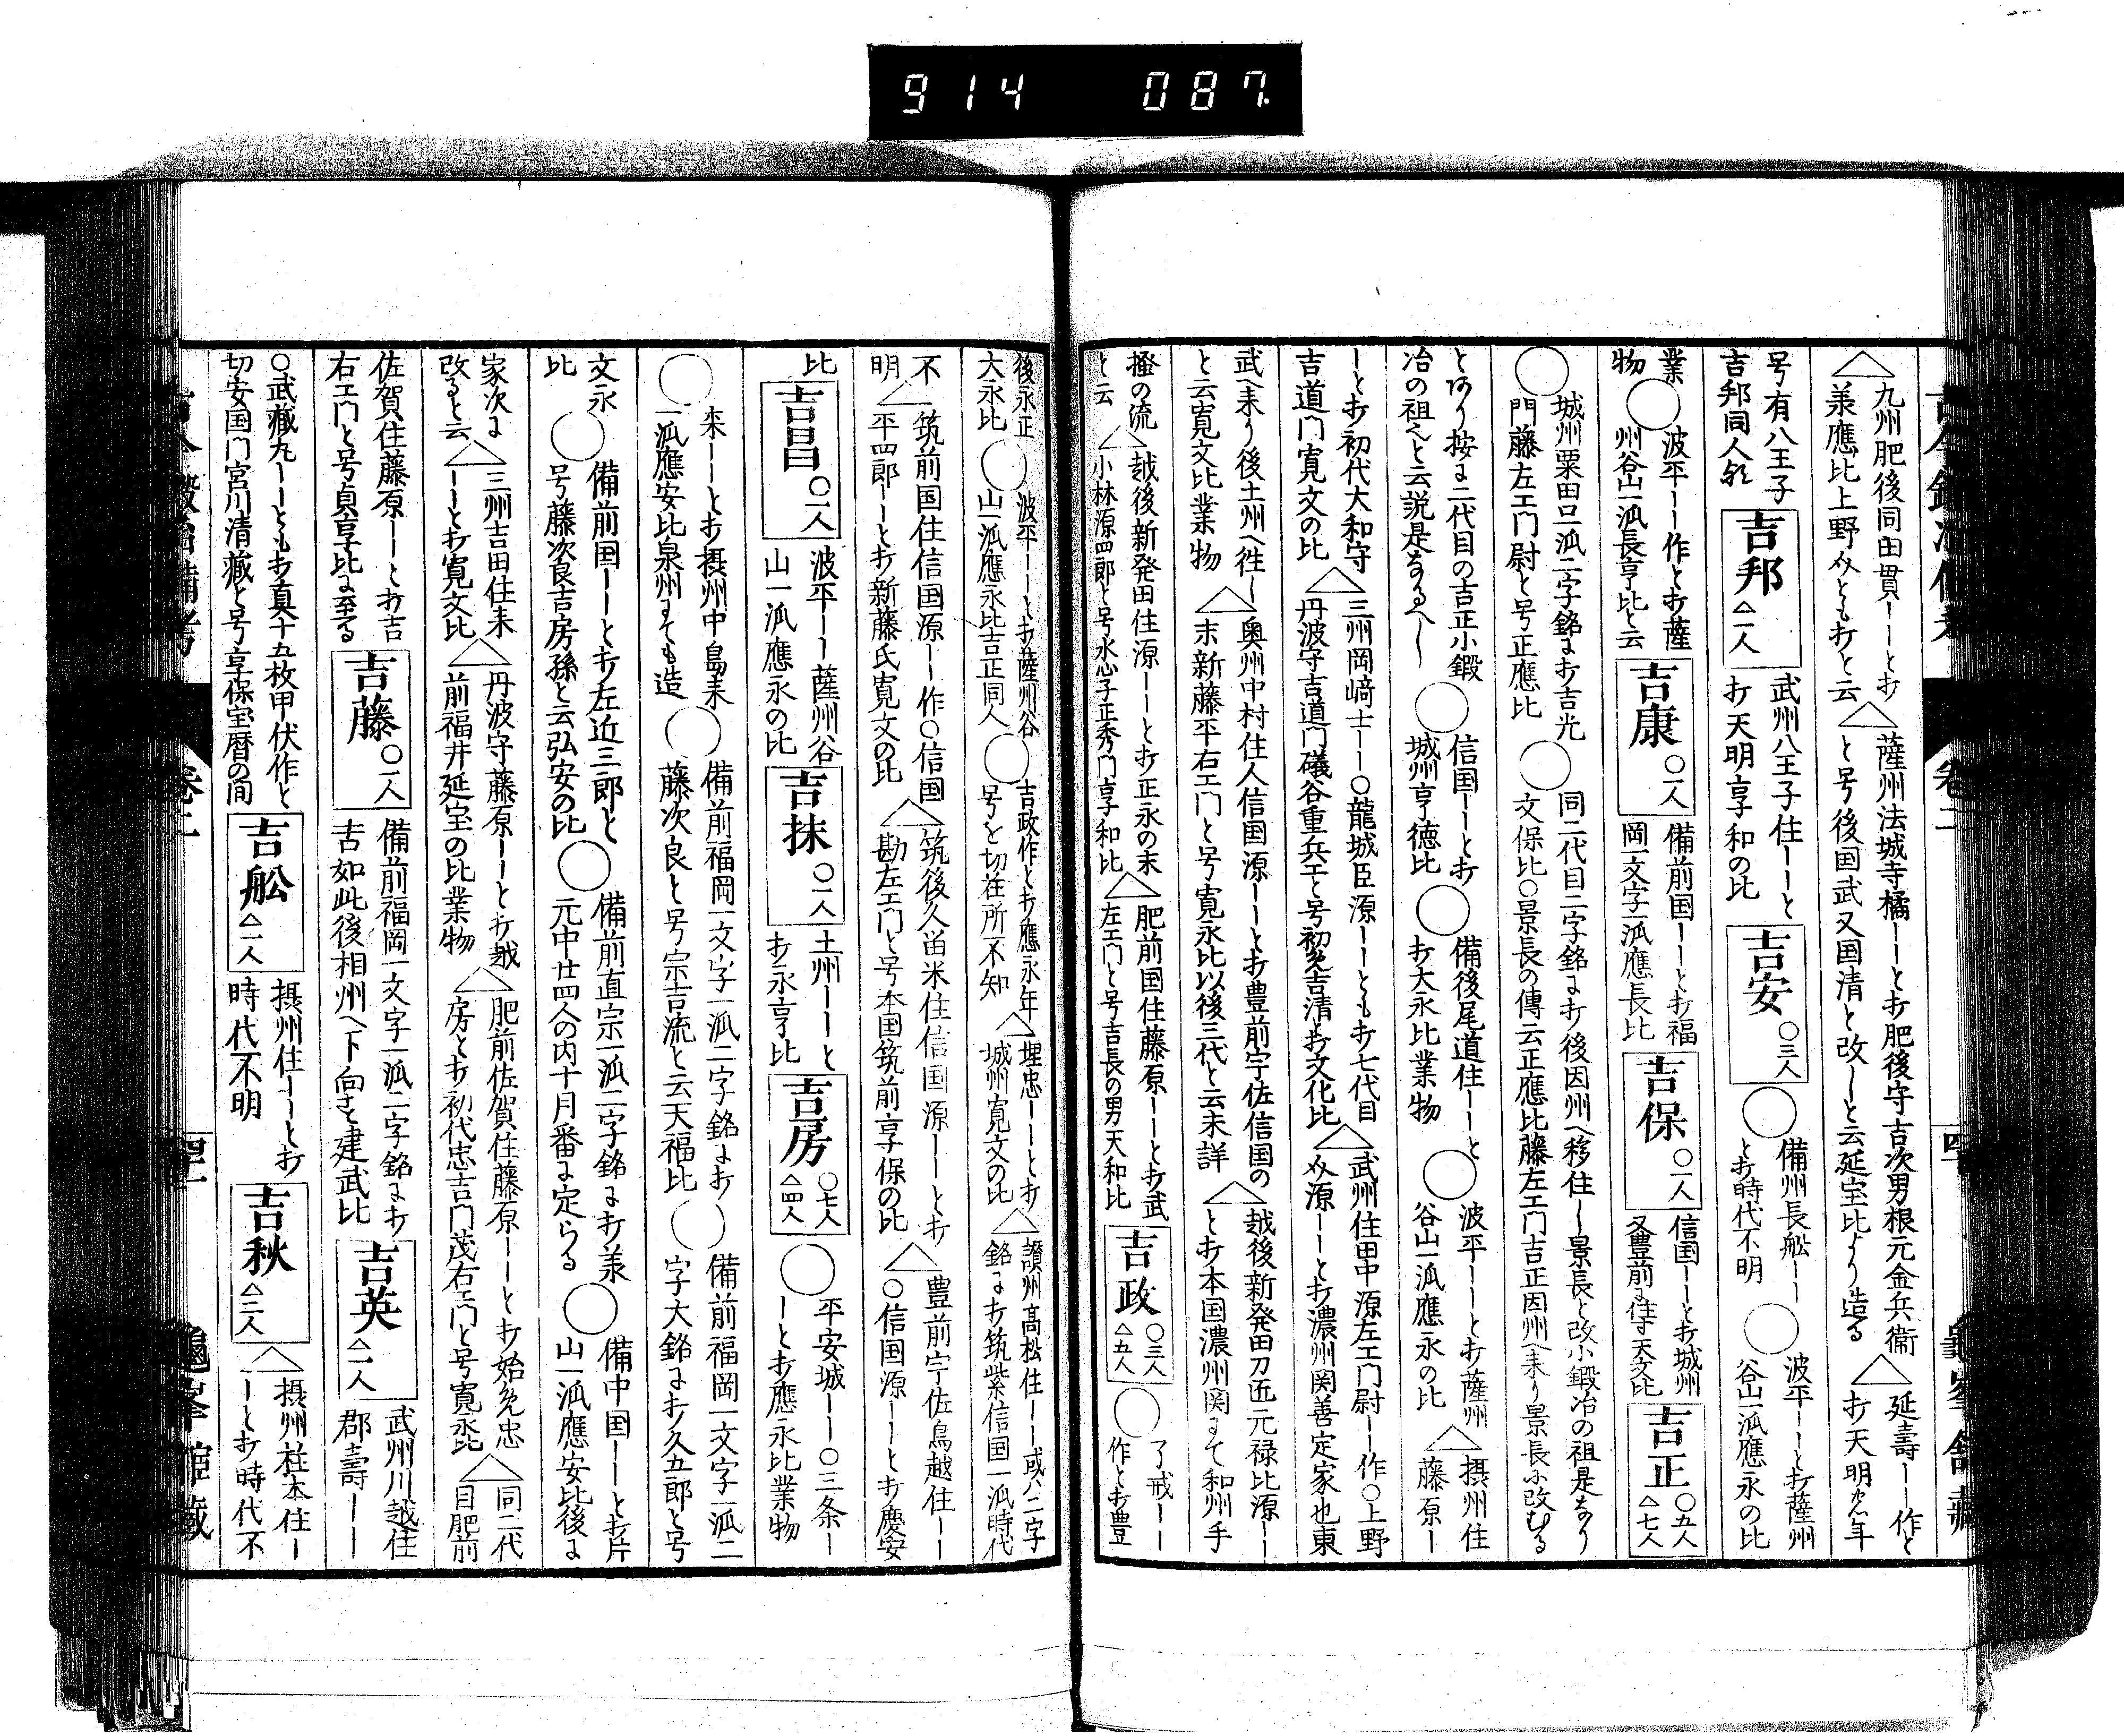 914 087
△九州肥後同田貫｜｜とオ
兼應比上野介ともオと云
△薩州法城寺橘｜｜とオ肥後守吉次男根元金兵衛
と号後国武又国清と改｜と云延宝比より造る
△延壽｜｜作と
オ天明年
号有八王子
吉邦同人
吉邦 △一人
武州八王子住｜｜と
オ天明享和の比
吉安 ○三人
○備州長舩｜｜
とオ時代不明
○波平｜｜とオ薩州
谷山一派應永の比
業
物
○波平｜｜作とオ薩
州谷山一派長享比と云
吉康 ○一人
備前国｜｜とオ福
岡一文字一派應長比
吉保 ○一人
信国｜｜とオ城州
又豊前に住す天文比
吉正 ○五人 △七人
○城州粟田口一派二字銘にオ吉光
門藤左エ門尉と号正應比
○同二代目二字銘にオ後因州へ移住｜景長と改小鍛冶の祖是なり
文保比○景長の傳云正應比藤左エ門吉正因州へ来り景長に改むる
とあり按に二代目の吉正小鍛
冶の祖と云説是なるへし
○信国｜｜とオ
城州享徳比
○備後尾道住｜｜と
オ大永比業物
○波平｜｜とオ薩州
谷山一派應永の比
△摂州住
藤原｜
｜とオ初代大和守
吉道門寛文の比
△三州岡﨑士｜｜○龍城臣源｜｜ともオ七代目
丹波守吉道門礒谷重兵エと号初名吉清とオ文化比
△武州住田中源左エ門尉｜｜作○上野
介源｜｜とオ濃州関善定家也東
武へ来り後土州へ往｜
と云寛文比業物
△奥州中村住人信国源｜｜とオ豊前宇佐信国の
末新藤平右エ門と号寛永比以後三代と云未詳
△越後新発田刀匠元禄比源｜｜
とオ本国濃州関にて和州手
掻の流
と云
△越後新発田住源｜｜とオ正永の末
小林源四郎と号水心子正秀門享和比
△肥前国住藤原｜｜とオ武
左エ門と号吉長の男天和比
吉政 ○三人 △五人
○了戒｜｜
作とオ豊
後永正
大永比
○波平｜｜とオ薩州谷
山一派應永比吉正同人
○吉政作とオ應永年
号を切在所不知
△埋忠｜｜とオ
城州寛文の比
△讃州髙松住｜｜或ハ二字
銘にオ筑紫信国一派時代
不
明
△筑前国住信国源｜｜作○信国
平四郎｜｜とオ新藤氏寛文の比
△筑後久留米住信国源｜｜とオ
勘左エ門と号本国筑前享保の比
△豊前宇佐鳥越住｜｜
○信国源｜｜とオ慶安
比
吉昌 ○一人
波平｜｜薩州谷
山一派應永の比
吉抹 ○一人
土州｜｜と
オ永享比
吉房 ○七人 △四人
○平安城｜｜○三条｜
｜とオ應永比業物
○来｜｜とオ摂州中島来
一派應安比泉州にても造
○備前福岡一文字一派二字銘にオ
藤次良と号宗吉流と云天福比
○備前福岡一文字一派二
字大銘にオ久五郎と号
文永
比
○備前国｜｜とオ左近三郎と
号藤次良吉房孫と云弘安の比
○備前直宗一派二字銘にオ兼
元中廿四人の内十月番に定らる
○備中国｜｜とオ片
山一派應安比後に
家次に
改ると云
△三州吉田住来
｜｜とオ寛文比
△丹波守藤原｜｜とオ越
前福井延宝の比業物
△肥前佐賀住藤原｜｜とオ始名忠
房とオ初代忠吉門茂右エ門と号寛永比
△同二代
目肥前
佐賀住藤原｜｜とオ吉
右エ門と号貞享比に至る
吉藤 ○一人
備前福岡一文字一派二字銘にオ
古如此後相州へ下向すと建武比
吉英 △一人
武州川越住
郡壽｜｜
○武藏丸｜｜ともオ真十五枚甲伏作と
切安国門宮川清藏と号享保宝暦の間
吉舩 △一人
摂州住｜｜とオ
時代不明
吉秋 △二人
△摂州桂本住｜
｜とオ時代不